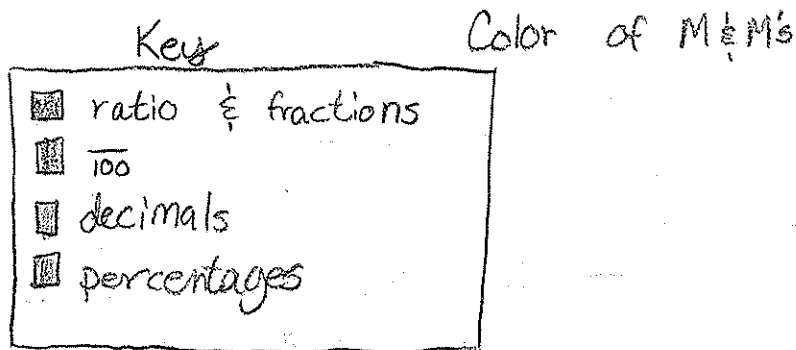 Key
Color of M&M's
ratio & fractions
/100
decimals
percentages